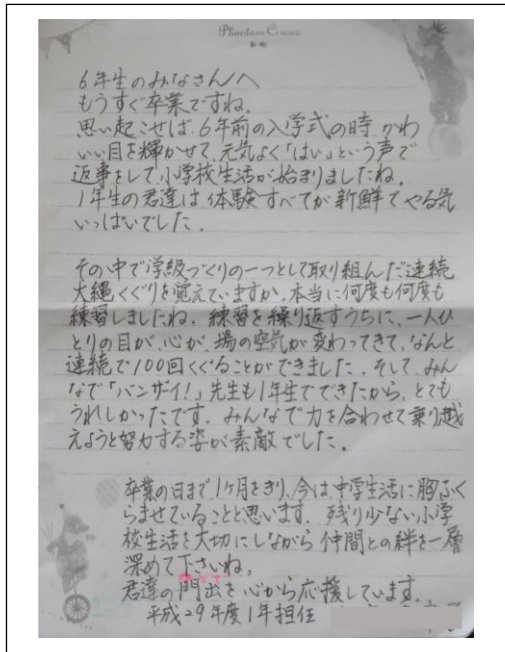 Phantom Circus
6年生のみなさんへ
もうすぐ卒業ですね。
思い起こせば、6年前の入学式の時 かわ
いい目を輝かせて、元気よく「はい」という声で
返事をして小学校生活が始まりましたね。
1年生の君達は 体験すべてが新鮮でやる気
いっぱいでした。
その中で学級づくりの一つとして取り組んだ連続
大縄くぐりを覚えていますか。本当に何度も何度も
練習しましたね。練習を繰り返すうちに、一人ひ
とりの目が、心が、場の空気が変わってきて、なんと
連続で100回くぐることができました。そして、みん
なで「バンザイ!」先生も1年生でできたから、とても
うれしかったです。みんなで力を合わせて乗り越
えようと努力する姿が素敵でした。
卒業の日まで、1ヶ月をきり、今は、中学生活に胸ふく
らませていることと思います。残り少ない小学
校生活を大切にしながら 仲間との絆を一層
深めて下さいね。
君達の門出を心から応援しています。
平成29年度1年担任